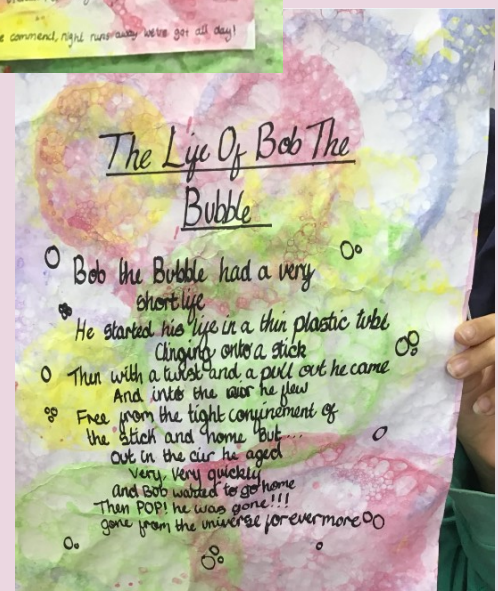 e commend, night runs away we've got all day!
The Life Of Bob The
Bubble
Bob the Bubble had a very
short life
He started his life in a thin plastic tube
Clinging onto a stick
Then with a twist and a pull out he came
And into the air he flew
Free from the tight confinement of
the stick and home But...
out in the air he aged
Very, Very quickly
and Bob wanted to go home
Then POP! he was gone!!!
gone from the universe forevermore